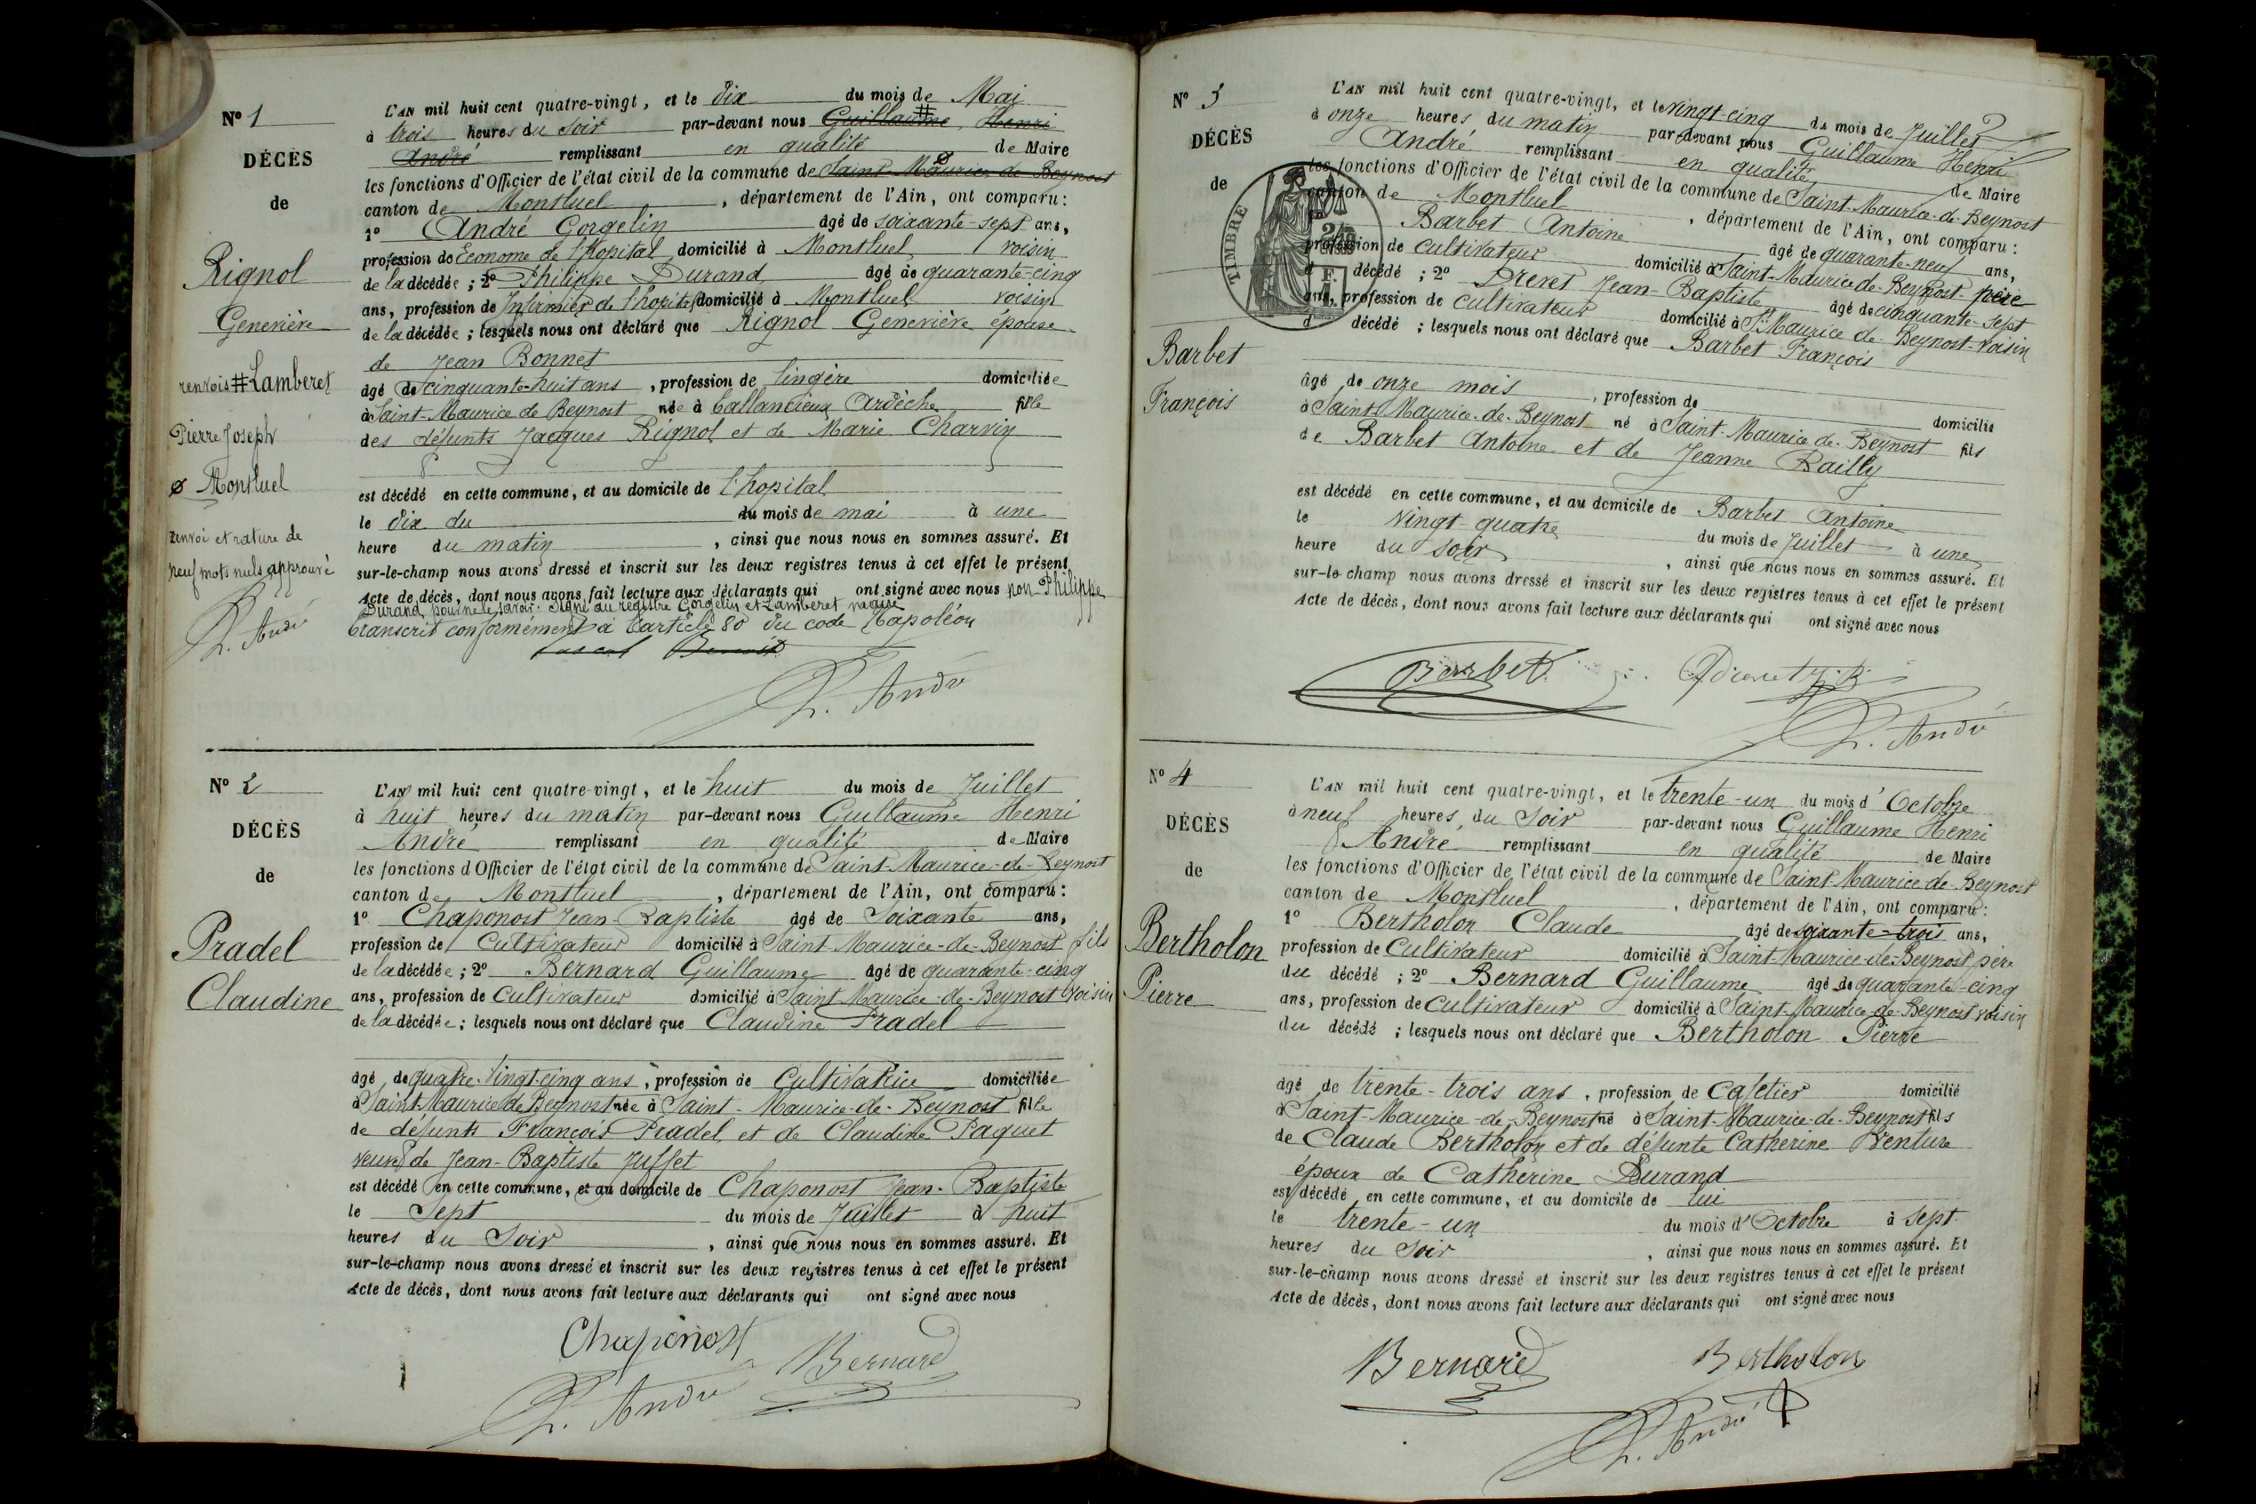 N° 1
DÉCÈS
de
Rignol
Genevière
renvois # Lamberet
Pierre Joseph
ø Montluel
renvoi et rature de
neuf mots nuls approuvé
h. André
L'AN mil huit cent quatre-vingt, et le dix du mois de Mai
à trois heures du soir par-devant nous Guillaume # Henri
André remplissant en qualité de Maire
les fonctions d'Officier de l'état civil de la commune de Saint-Maurice de Beynost ø
canton de Montluel, département de l'Ain, ont comparu:
1° André Gorgelin âgé de soixante-sept ans,
profession de Econome de l'Hopital domicilié à Montluel voisin
de la décédée; 2° Philippe Durand âgé de quarante-cinq
ans, profession de Infirmier de l'hopital domicilié à Montluel voisin
de la décédée; lesquels nous ont déclaré que Rignol Genevière épouse
de Jean Bonnet
âgé de cinquante-huit ans, profession de lingère domiciliée
à Saint-Maurice de Beynost née à Callancieux Ardèche fille
des défunts Jacques Rignol et de Marie Charvin
est décédé en cette commune, et au domicile de l'hopital
le dix du du mois de mai à une
heure du matin, ainsi que nous nous en sommes assuré. Et
sur-le-champ nous avons dressé et inscrit sur les deux registres tenus à cet effet le présent
Acte de décès, dont nous avons fait lecture aux déclarants qui ont signé avec nous non Philippe
Durand pour ne le savoir. Signé au registre Gorgelin et Lamberet maire
transcrit conformément à l'article 80 du code Napoléon
h. André
N° 2
DÉCÈS
de
Pradel
Claudine
L'AN mil huit cent quatre-vingt, et le huit du mois de Juillet
à huit heures du matin par-devant nous Guillaume Henri
André remplissant en qualité de Maire
les fonctions d'Officier de l'état civil de la commune de Saint-Maurice-de-Beynost
canton de Montluel, département de l'Ain, ont comparu:
1° Chaponost Jean-Baptiste âgé de Soixante ans,
profession de Cultivateur domicilié à Saint Maurice-de-Beynost fils
de la décédée; 2° Bernard Guillaume âgé de quarante-cinq
ans, profession de Cultivateur domicilié à Saint Maurice-de-Beynost voisin
de la décédée; lesquels nous ont déclaré que Claudine Pradel
âgé de quatre-vingt-cinq ans, profession de Cultivatrice domiciliée
à Saint-Maurice de Beynost née à Saint-Maurice-de-Beynost fille
de défunts François Pradel et de Claudine Paquet
veuve de Jean-Baptiste Juffet
est décédé en cette commune, et au domicile de Chaponost Jean-Baptiste
le Sept du mois de Juillet à huit
heures du Soir, ainsi que nous nous en sommes assuré. Et
sur-le-champ nous avons dressé et inscrit sur les deux registres tenus à cet effet le présent
Acte de décès, dont nous avons fait lecture aux déclarants qui ont signé avec nous
Chaponost
Bernard
h. André
N° 3
DÉCÈS
de
Barbet
François
TIMBRE
L'AN mil huit cent quatre-vingt, et le vingt-cinq du mois de Juillet
à onze heures du matin par-devant nous Guillaume Henri
André remplissant en qualité de Maire
les fonctions d'Officier de l'état civil de la commune de Saint-Maurice-de-Beynost
canton de Montluel, département de l'Ain, ont comparu:
Barbet Antoine âgé de quarante-neuf ans,
profession de cultivateur domicilié à Saint-Maurice de-Beynost-père
d décédé; 2° Drevet Jean-Baptiste âgé de cinquante-sept
ans, profession de cultivateur domicilié à St Maurice de Beynost-voisin
d décédé; lesquels nous ont déclaré que Barbet François
âgé de onze mois, profession de domicilié
à Saint-Maurice-de-Beynost né à Saint-Maurice-de-Beynost fils
de Barbet Antoine et de Jeanne Railly
est décédé en cette commune, et au domicile de Barbet Antoine
le vingt-quatre du mois de Juillet à une
heure du soir, ainsi que nous nous en sommes assuré. Et
sur-le-champ nous avons dressé et inscrit sur les deux registres tenus à cet effet le présent
Acte de décès, dont nous avons fait lecture aux déclarants qui ont signé avec nous
Barbet
Drevet J. B.
h. André
N° 4
DÉCÈS
de
Bertholon
Pierre
L'AN mil huit cent quatre-vingt, et le trente-un du mois d'Octobre
à neuf heures du Soir par-devant nous Guillaume Henri
André remplissant en qualité de Maire
les fonctions d'Officier de l'état civil de la commune de Saint-Maurice-de-Beynost
canton de Montluel, département de l'Ain, ont comparu:
1° Bertholon Claude âgé de soixante-trois ans,
profession de Cultivateur domicilié à Saint-Maurice-de-Beynost père
du décédé; 2° Bernard Guillaume âgé de quarante-cinq
ans, profession de Cultivateur domicilié à Saint-Maurice-de-Beynost voisin
du décédé; lesquels nous ont déclaré que Bertholon Pierre
âgé de trente-trois ans, profession de Cafetier domicilié
à Saint-Maurice-de-Beynost né à Saint-Maurice-de-Beynost fils
de Claude Bertholon et de défunte Catherine Venture
époux de Catherine Durand
est décédé en cette commune, et au domicile de lui
le trente-un du mois d'Octobre à Sept
heures du Soir, ainsi que nous nous en sommes assuré. Et
sur-le-champ nous avons dressé et inscrit sur les deux registres tenus à cet effet le présent
Acte de décès, dont nous avons fait lecture aux déclarants qui ont signé avec nous
Bernard
Bertholon
h. André